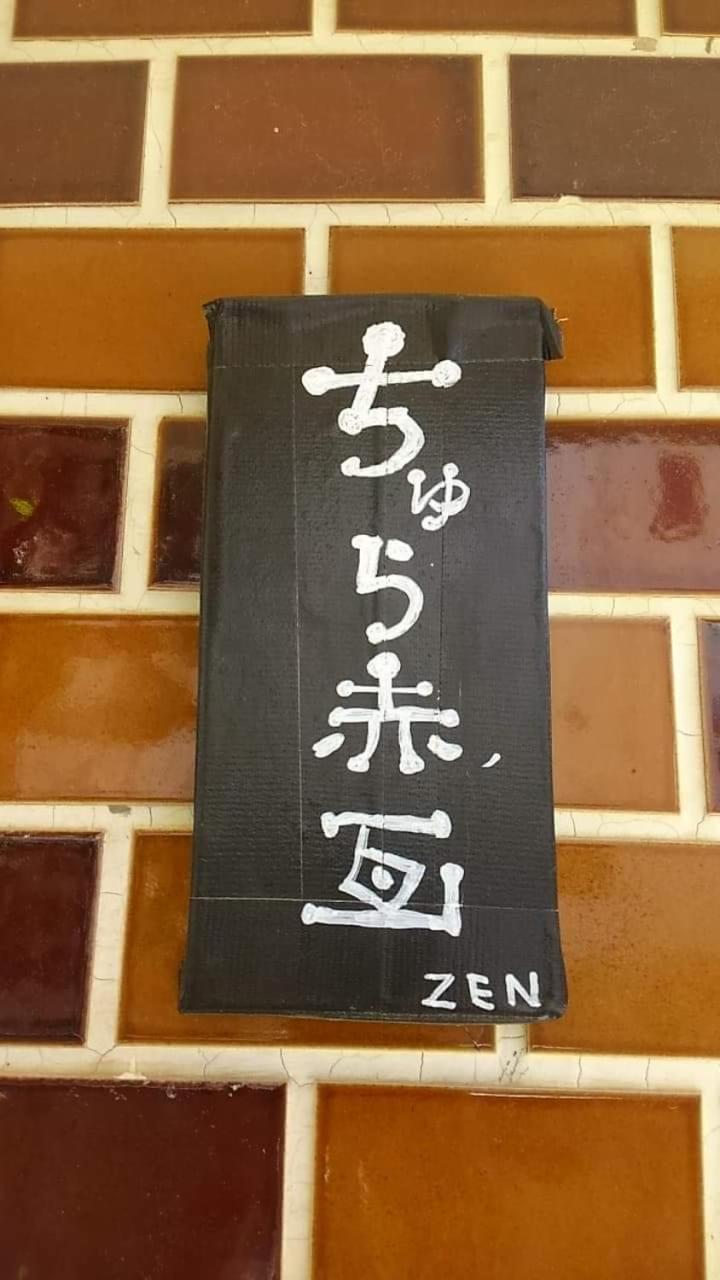 ちゅら赤瓦
ZEN